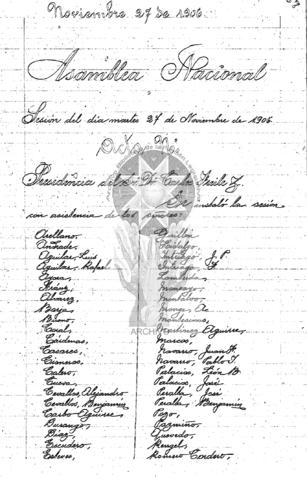 Noviembre 27 de 1906.
Asamblea Nacional
Sesión del día martes 27 de Noviembre de 1906
Acta Nº
Presidencia del Sr. Dr. Carlos Freile Z.
Se instaló la sesión
con asistencia de los señores:
Arellano,
Andrade,
Aguilar, Luis
Aguilar, Rafael
Alvarez,
Borja
Bueno,
Coral,
Cárdenas,
Cisneros,
Calero,
Cueva,
Cevallos, Alejandro
Cevallos, Benjamín
Carbo Aguirre,
Durango,
Díaz,
Escudero,
Esteves,
Guillén
Hidalgo,
Intriago, J. P.
Intriago,
Moncayo,
Montalvo,
Monge,
Montesinos,
Martínez Aguirre,
Marcos,
Navarro, Juan F.
Navarro, Pablo I.
Palacios, León B.
Palacios, José
Peralta, José
Peralta, Benjamín
Pozo,
Pazmiño,
Quevedo,
Rengel,
Romero Cordero,
ARCH